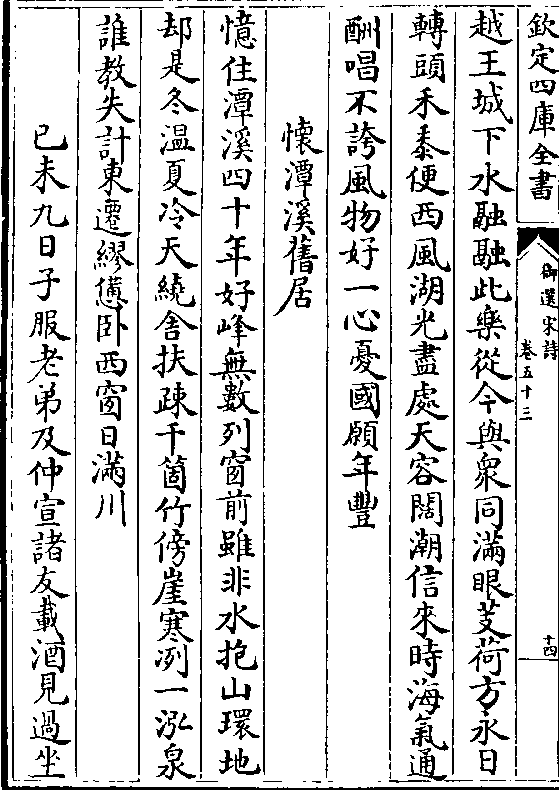 欽定四庫全書
御選宋詩
卷五十三
十四
越王城下水融融此樂從今與衆同滿眼芰荷方永日
轉頭禾黍便西風湖光盡處天容闊潮信來時海氣通
酬唱不誇風物好一心憂國願年豐
懷潭溪舊居
憶住潭溪四十年好峰無數列窗前雖非水抱山環地
却是冬温夏冷天繞舍扶疎千箇竹傍崖寒冽一泓泉
誰教失計東遷繆憊卧西窗日滿川
已未九日子服老弟及仲宣諸友載酒見過坐